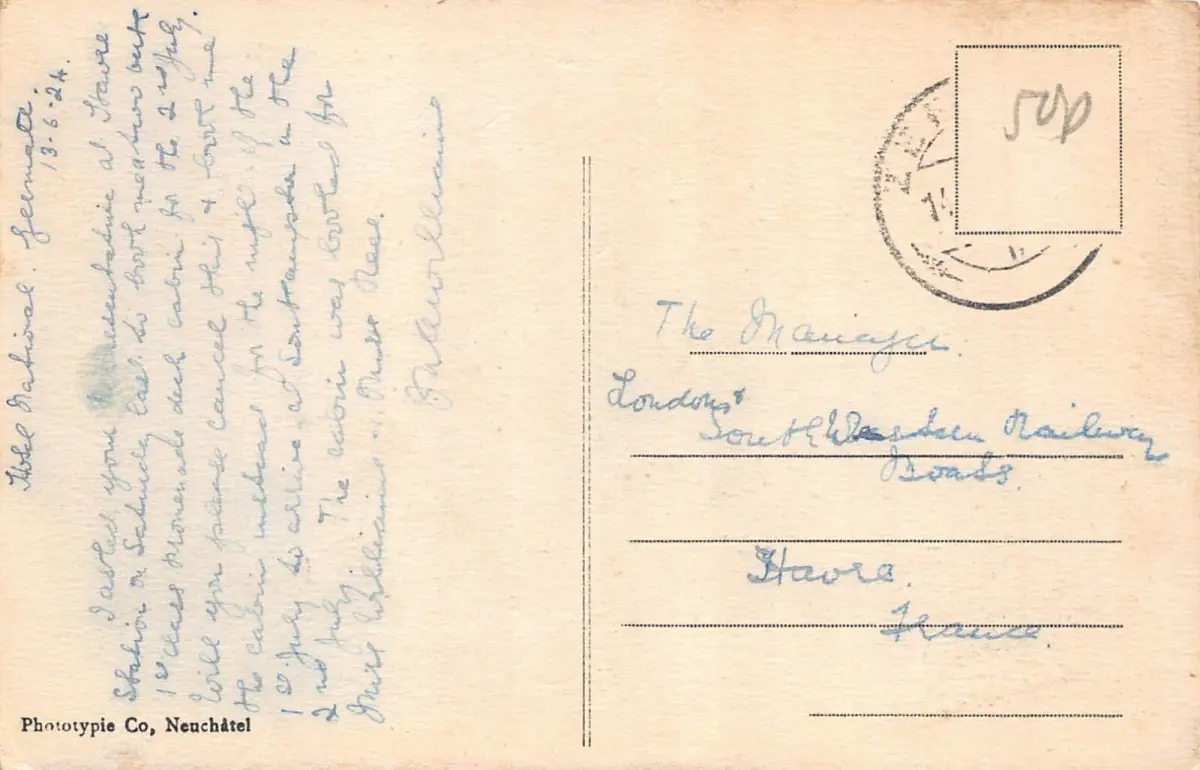 Hotel National. Zermatt.
13-6-24.
I asked your representative at Havre
Station on Saturday last to book me two berth
1st class Promenade deck cabin for the 2nd July.
Will you please cancel this & book me
the cabin instead for the night of the
1st July to arrive at Southampton on the
2nd July. The cabin was booked for
Miss Williams & Miss
Williams
Phototypie Co, Neuchâtel
50p
ZER
The Manager.
London &
South Western Railway
Boats.
Havre.
France.